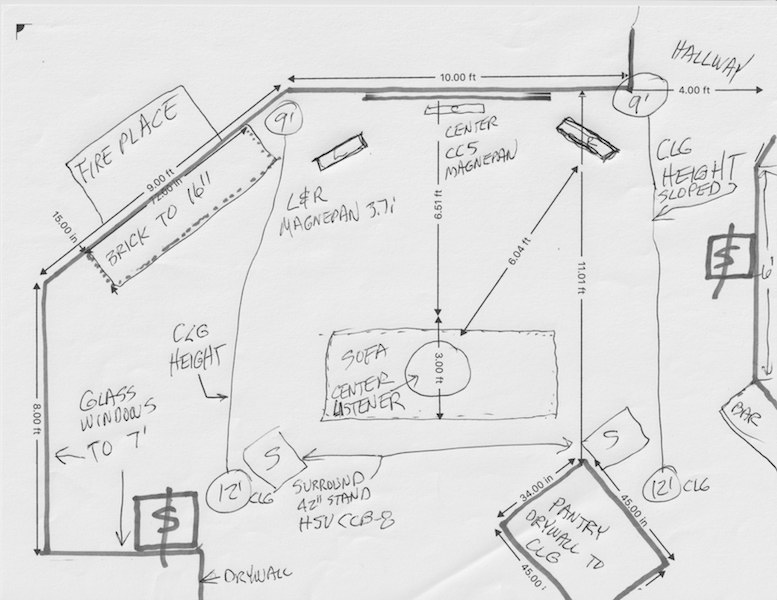 10.00 ft
HALLWAY
4.00 ft
9'
9'
FIRE PLACE
9.00 ft
72.00 in
15.00 in
BRICK TO 16"
L
CENTER
CC5
MAGNEPAN
L&R
MAGNEPAN 3.7i
CLG
HEIGHT
SLOPED
6.51 ft
6.04 ft
11.01 ft
$
6'
CLG
HEIGHT
SOFA
CENTER
LISTENER
3.00 ft
8.00 ft
GLASS
WINDOWS
TO 7'
BAR
S
S
12'
CLG
SURROUND
42" STAND
HSU CCB-8
12'
CLG
$
34.00 in
45.00 in
PANTRY
DRYWALL TO
CLG
45.00
DRYWALL